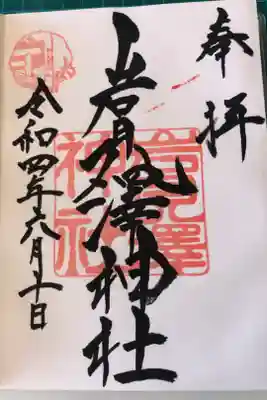 奉拝
岩見澤神社
岩見澤
神社
令和四年六月十一日